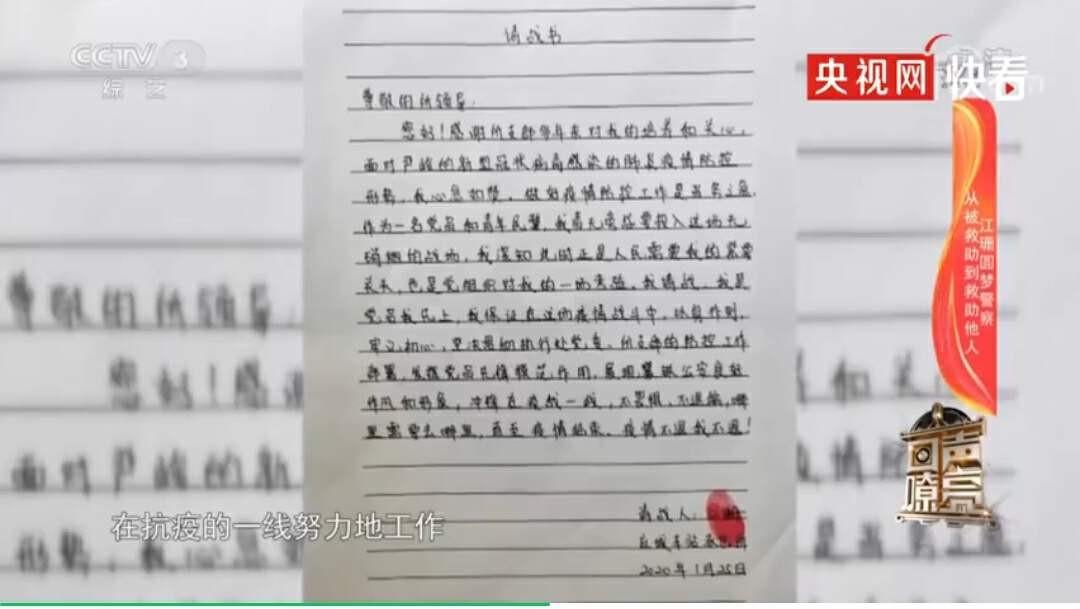 CCTV 3
综艺
央视网 快看
江珊圆梦警察
从被救助到救助他人
请战书
尊敬的所领导：
您好！感谢所支部多年来对我的培养和关心，
面对严峻的新型冠状病毒感染的肺炎疫情防控
形势，我心急如焚，做好疫情防控工作是当务之急，
作为一名党员和青年民警，我责无旁贷要投入这场无
硝烟的战场，我深知此时正是人民需要我的紧要
关头，也是党组织对我的一场考验，我请战，我是
党员我先上，我保证在这场疫情战斗中，以身作则，
牢记初心，坚决贯彻执行处党委、所支部的防控工作
部署，发挥党员先锋模范作用，展现警察公安良好
作风和形象，冲锋在疫战一线，不畏惧、不退缩，哪
里需要去哪里，直至疫情结束。疫情不退我不退！
请战人：
车站派出所
2020年1月25日
尊敬的所领导
您好！感
面对严峻的新
形势，我心急
和关心
疫情防
是当务之急
在抗疫的一线努力地工作